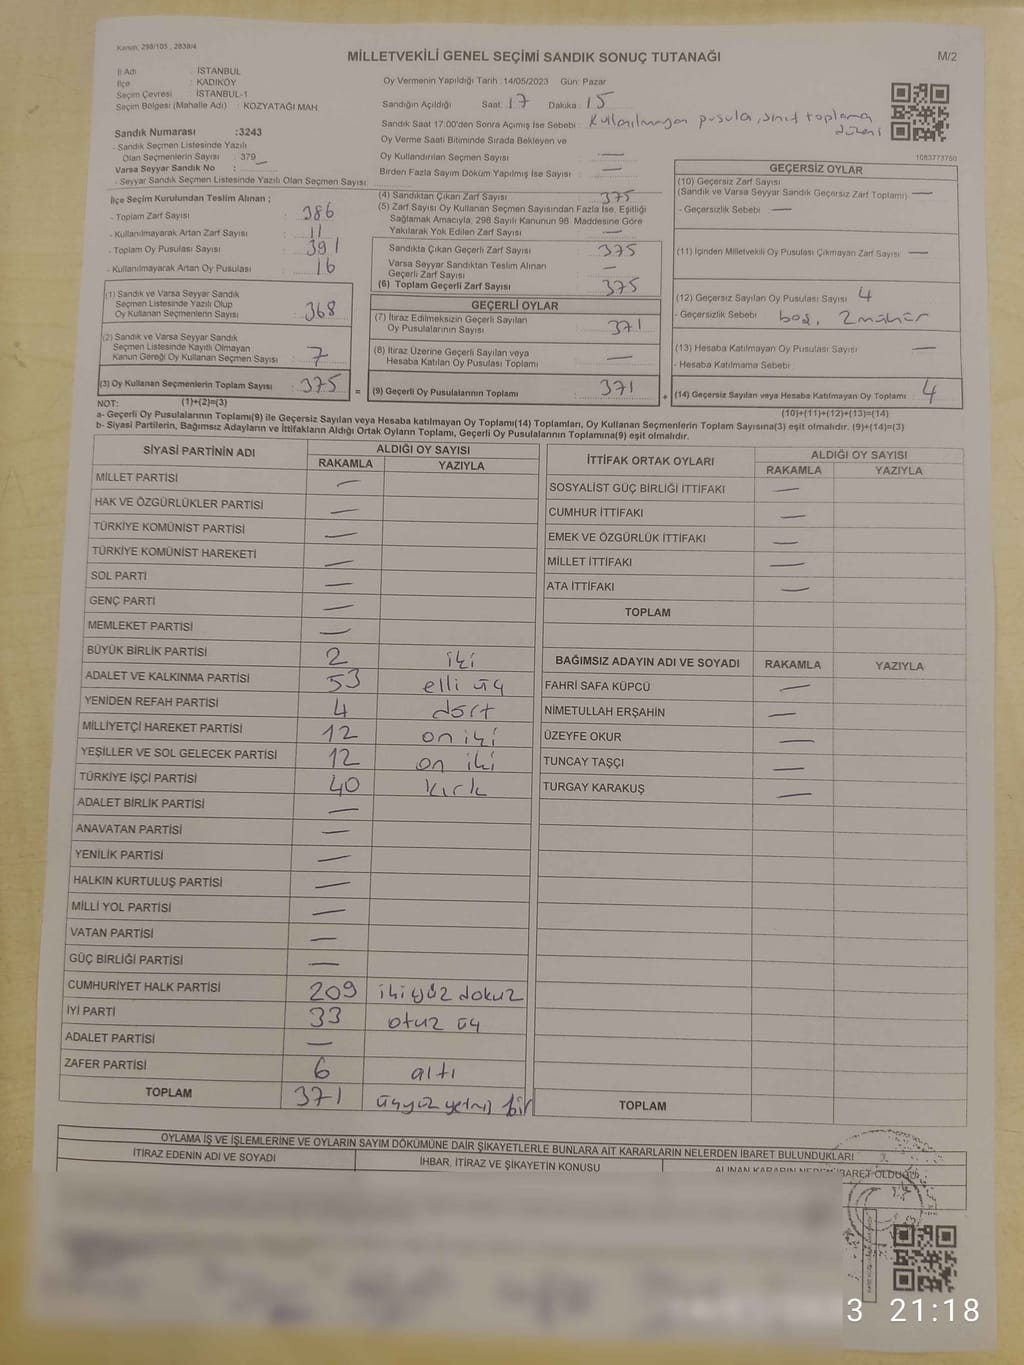 Kanun, 298/105 , 2839/4
MİLLETVEKİLİ GENEL SEÇİMİ SANDIK SONUÇ TUTANAĞI
M/2
İl Adı : İSTANBUL
İlçe : KADIKÖY
Seçim Çevresi : İSTANBUL-1
Seçim Bölgesi (Mahalle Adı) : KOZYATAĞI MAH.
Sandık Numarası :3243
- Sandık Seçmen Listesinde Yazılı
Olan Seçmenlerin Sayısı : 379
Varsa Seyyar Sandık No : —
- Seyyar Sandık Seçmen Listesinde Yazılı Olan Seçmen Sayısı:
Oy Vermenin Yapıldığı Tarih :14/05/2023 Gün: Pazar
Sandığın Açıldığı Saat: 17 Dakika: 15
Sandık Saat 17:00'den Sonra Açımış İse Sebebi: Kullanılmayan pusula, sınıf toplama
düzeni
Oy Verme Saati Bitiminde Sırada Bekleyen ve
Oy Kullandırılan Seçmen Sayısı —
Birden Fazla Sayım Döküm Yapılmış İse Sayısı —
1083773750
İlçe Seçim Kurulundan Teslim Alınan ;
- Toplam Zarf Sayısı : 386
- Kullanılmayarak Artan Zarf Sayısı : 11
- Toplam Oy Pusulası Sayısı : 391
- Kullanılmayarak Artan Oy Pusulası : 16
(1) Sandık ve Varsa Seyyar Sandık
Seçmen Listesinde Yazılı Olup
Oy Kullanan Seçmenlerin Sayısı : 368
(2) Sandık ve Varsa Seyyar Sandık
Seçmen Listesinde Kayıtlı Olmayan
Kanun Gereği Oy Kullanan Seçmen Sayısı : 7
(3) Oy Kullanan Seçmenlerin Toplam Sayısı : 375
(1)+(2)=(3)
(4) Sandıktan Çıkan Zarf Sayısı : 375
(5) Zarf Sayısı Oy Kullanan Seçmen Sayısından Fazla İse, Eşitliği
Sağlamak Amacıyla, 298 Sayılı Kanunun 98. Maddesine Göre
Yakılarak Yok Edilen Zarf Sayısı : —
Sandıkta Çıkan Geçerli Zarf Sayısı : 375
Varsa Seyyar Sandıktan Teslim Alınan
Geçerli Zarf Sayısı : —
(6) Toplam Geçerli Zarf Sayısı : 375
GEÇERLİ OYLAR
(7) İtiraz Edilmeksizin Geçerli Sayılan
Oy Pusulalarının Sayısı : 371
(8) İtiraz Üzerine Geçerli Sayılan veya
Hesaba Katılan Oy Pusulası Toplamı : —
= (9) Geçerli Oy Pusulalarının Toplamı : 371 +
GEÇERSİZ OYLAR
(10) Geçersiz Zarf Sayısı
(Sandık ve Varsa Seyyar Sandık Geçersiz Zarf Toplamı) —
- Geçersizlik Sebebi : —
(11) İçinden Milletvekili Oy Pusulası Çıkmayan Zarf Sayısı : —
(12) Geçersiz Sayılan Oy Pusulası Sayısı : 4
- Geçersizlik Sebebi : boş, 2 mühür
(13) Hesaba Katılmayan Oy Pusulası Sayısı : —
- Hesaba Katılmama Sebebi :
(14) Geçersiz Sayılan veya Hesaba Katılmayan Oy Toplamı : 4
(10)+(11)+(12)+(13)=(14)
NOT:
a- Geçerli Oy Pusulalarının Toplamı(9) ile Geçersiz Sayılan veya Hesaba katılmayan Oy Toplamı(14) Toplamları, Oy Kullanan Seçmenlerin Toplam Sayısına(3) eşit olmalıdır. (9)+(14)=(3)
b- Siyasi Partilerin, Bağımsız Adayların ve İttifakların Aldığı Ortak Oyların Toplamı, Geçerli Oy Pusulalarının Toplamına(9) eşit olmalıdır.
SİYASİ PARTİNİN ADI ALDIĞI OY SAYISI
RAKAMLA YAZIYLA
MİLLET PARTİSİ —
HAK VE ÖZGÜRLÜKLER PARTİSİ —
TÜRKİYE KOMÜNİST PARTİSİ —
TÜRKİYE KOMÜNİST HAREKETİ —
SOL PARTİ —
GENÇ PARTİ —
MEMLEKET PARTİSİ —
BÜYÜK BİRLİK PARTİSİ 2 iki
ADALET VE KALKINMA PARTİSİ 53 elli üç
YENİDEN REFAH PARTİSİ 4 dört
MİLLİYETÇİ HAREKET PARTİSİ 12 on iki
YEŞİLLER VE SOL GELECEK PARTİSİ 12 on iki
TÜRKİYE İŞÇİ PARTİSİ 40 kırk
ADALET BİRLİK PARTİSİ —
ANAVATAN PARTİSİ —
YENİLİK PARTİSİ —
HALKIN KURTULUŞ PARTİSİ —
MİLLİ YOL PARTİSİ —
VATAN PARTİSİ —
GÜÇ BİRLİĞİ PARTİSİ —
CUMHURİYET HALK PARTİSİ 209 ikiyüz dokuz
İYİ PARTİ 33 otuz üç
ADALET PARTİSİ —
ZAFER PARTİSİ 6 altı
TOPLAM 371 üçyüz yetmiş bir
İTTİFAK ORTAK OYLARI ALDIĞI OY SAYISI
RAKAMLA YAZIYLA
SOSYALİST GÜÇ BİRLİĞİ İTTİFAKI —
CUMHUR İTTİFAKI —
EMEK VE ÖZGÜRLÜK İTTİFAKI —
MİLLET İTTİFAKI —
ATA İTTİFAKI —
TOPLAM
BAĞIMSIZ ADAYIN ADI VE SOYADI RAKAMLA YAZIYLA
FAHRİ SAFA KÜPCÜ —
NİMETULLAH ERŞAHİN —
ÜZEYFE OKUR —
TUNCAY TAŞÇI —
TURGAY KARAKUŞ —
TOPLAM
OYLAMA İŞ VE İŞLEMLERİNE VE OYLARIN SAYIM DÖKÜMÜNE DAİR ŞİKAYETLERLE BUNLARA AİT KARARLARIN NELERDEN İBARET BULUNDUKLARI
İTİRAZ EDENİN ADI VE SOYADI İHBAR, İTİRAZ VE ŞİKAYETİN KONUSU ALINAN KARARIN NEDEN İBARET OLDUĞU
3 21:18